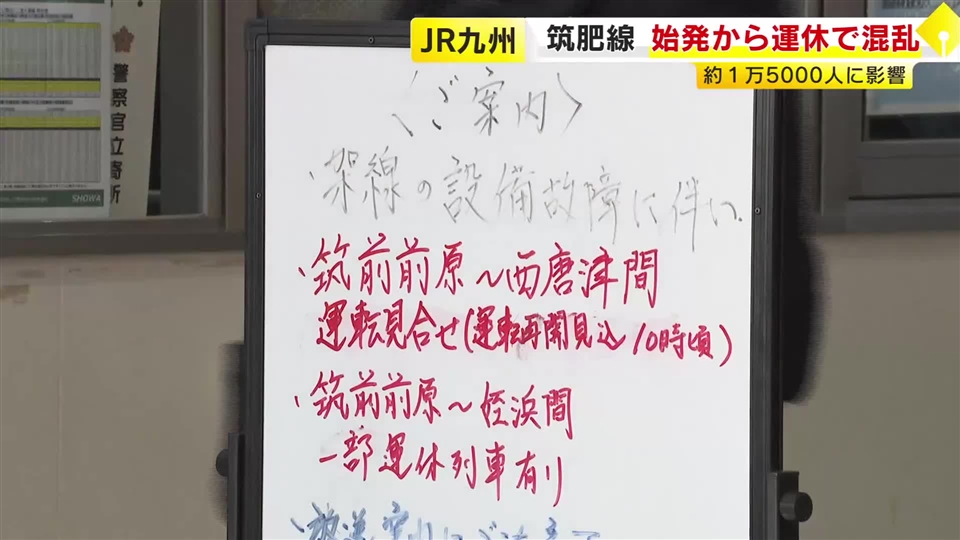 JR九州
筑肥線 始発から運休で混乱
約1万5000人に影響
警察官立寄所
SHOWA
〈ご案内〉
・架線の設備故障に伴い、
・筑前前原～西唐津間
運転見合せ(運転再開見込10時頃)
・筑前前原～姪浜間
一部運休列車有り